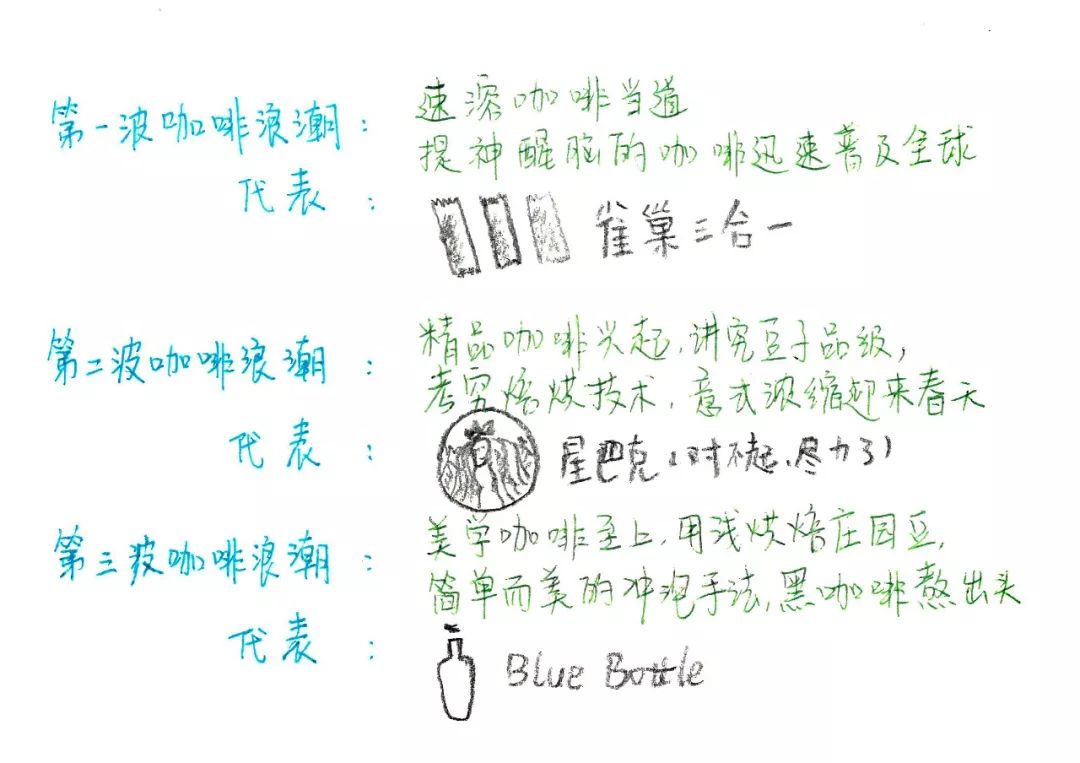 第一波咖啡浪潮：
速溶咖啡当道
提神醒脑的咖啡迅速普及全球
代表：
雀巢三合一
第二波咖啡浪潮：
精品咖啡兴起，讲究豆子品级，
考究焙烘技术，意式浓缩迎来春天
代表：
星巴克（对不起，尽力了）
第三波咖啡浪潮：
美学咖啡至上，用浅烘焙庄园豆，
简单而美的冲泡手法，黑咖啡熬出头
代表：
Blue Bottle